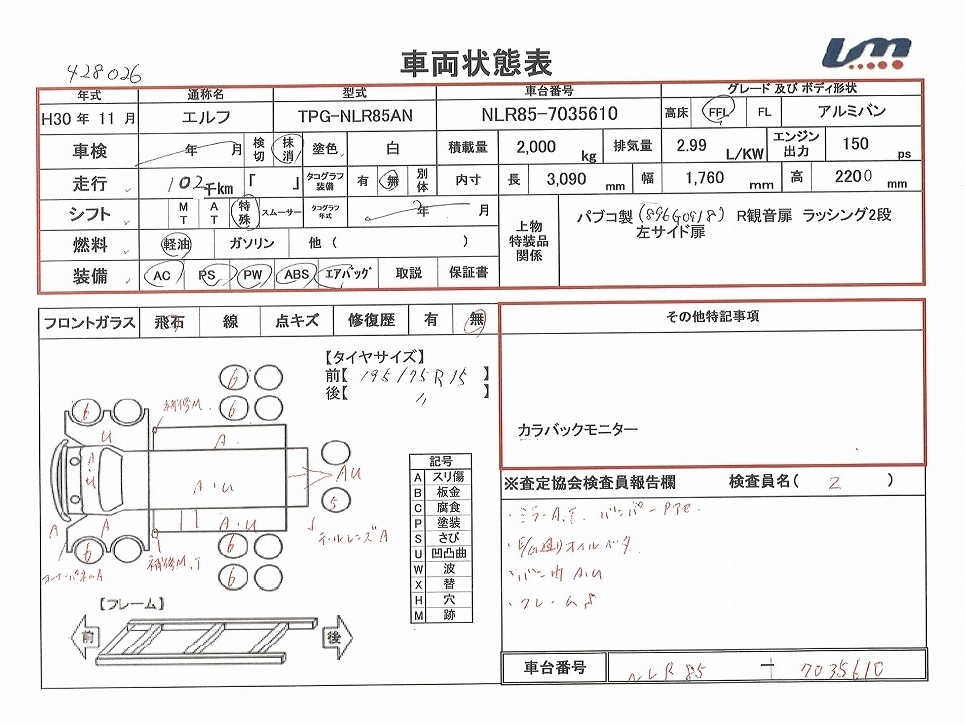 428026
車両状態表
um
年式 通称名 型式 車台番号 グレード及びボディ形状
H30 年 11 月 エルフ TPG-NLR85AN NLR85-7035610 高床 FFL FL アルミバン
車検 年 月 検切 抹消 塗色 白 積載量 2,000 kg 排気量 2.99 L/KW エンジン出力 150 ps
走行 102 千km 「 」 タコグラフ装備 有 無 別体 内寸 長 3,090 mm 幅 1,760 mm 高 2200 mm
シフト MT AT 特殊 スムーサー タコグラフ年式 年 月 上物特装品関係 パブコ製(896G0918) R観音扉 ラッシング2段
左サイド扉
燃料 軽油 ガソリン 他( )
装備 AC PS PW ABS エアバッグ 取説 保証書
フロントガラス 飛石 線 点キズ 修復歴 有 無
その他特記事項
カラバックモニター
【タイヤサイズ】
前【 195/75R15 】
後【 〃 】
6
6
6 補修M.
U A.
A U A.U AU
5
A A.U テールレンズA
6 6
補修M.T
6
【フレーム】
前 後
記号
A スリ傷
B 板金
C 腐食
P 塗装
S さび
U 凹凸曲
W 波
X 替
H 穴
M 跡
※査定協会検査員報告欄 検査員名( 2 )
・ミラーA.T. バンパー
オイル
・バン内 A.U
・フレームS
車台番号 NLR85 - 7035610